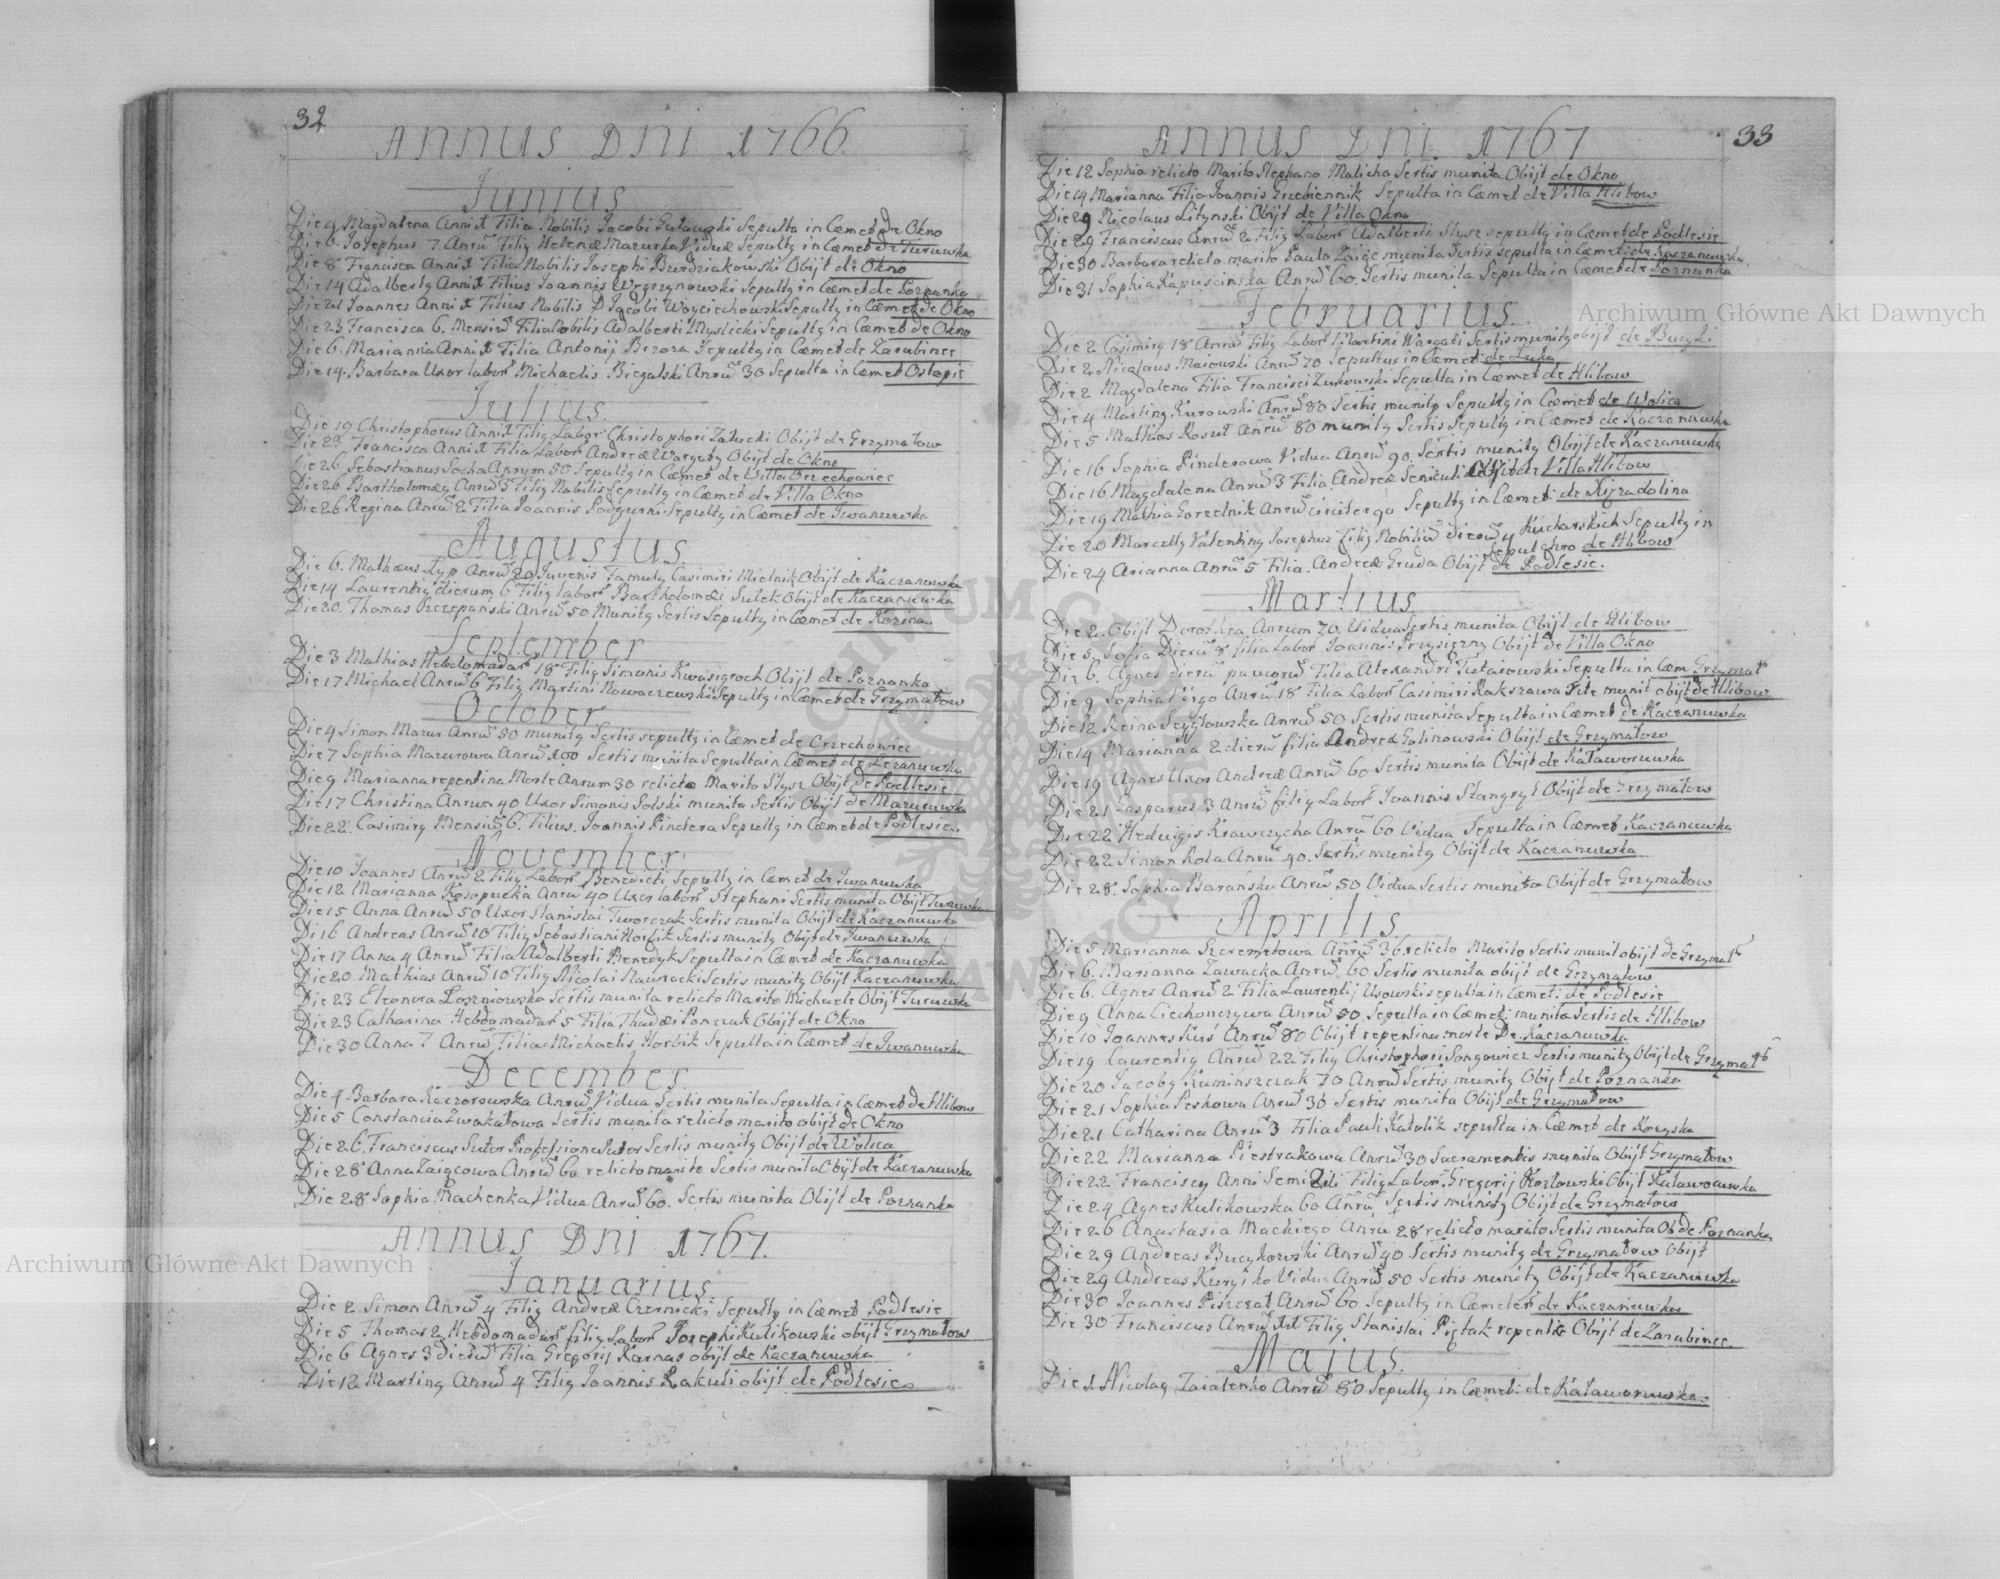 32
ANNUS DNI 1766.
Junius
Die 4 Magdalena Anni 1 Filia Nobilis Jacobi Sepulta in Cœmet de Okno
Die 6 Josephus 7 Anrū Filiꝯ Helenæ Mazurka Viduæ Sepultꝯ in Cœmet de Turuwka
Die 8 Francisca Anni 1 Filia Nobilis Josephi Burdziakowski Obijt de Okno
Die 14 Adalbertꝯ Anni 1 Filius Joannis Węgrzynowski Sepultꝯ in Cœmet de Poznanka
Die 21 Joannes Anni 1 Filius Nobilis D Jacobi Woyciechowski Sepultꝯ in Cœmet de Okno
Die 23 Francisca 6. Mensiū Filia Nobilis Adalberti Myslicki Sepultꝯ in Cœmet de Okno
Die 6. Marianna Anni 1 Filia Antonij Brzoza Sepultꝯ in Cœmet de Zarubince
Die 14. Barbara Uxor labor Michaelis Biegalski Anrū 30 Sepulta in Cœmet Ostapie
Julius.
Die 19 Christophorus Anni 1 Filiꝯ Labor Christophori Załucki Obijt de Grzymałow
Die 23. Francisca Anni 1 Filia Labor Andreæ Wargaty Obijt de Okno
Die 26 Sebastianus Socha Anrum 80 Sepultꝯ in Cœmet de Villa Orzechowiec
Die 26 Bartholomæꝯ Anrū 3 Filiꝯ Nobilis Sepultꝯ in Cœmet de Villa Okno
Die 26 Regina Anrū 2 Filia Joannis Podgurni Sepultꝯ in Cœmet de Iwanuwka
Augustus
Die 6. Mathæus Lyp Anrū 20 Juvenis Famulꝯ Casimiri Mielnik Obijt de Kaczanuwka
Die 14 Laurentiꝯ dierum 6 Filiꝯ labor Bartholomæi Sulek Obijt de Kaczanuwka
Die 20. Thomas Szczepański Anrū 50 Munitꝯ Sertis Sepultꝯ in Cœmet de Kozina
September
Die 3 Mathias Hebdomadar 18 Filiꝯ Simonis Kwasigroch Obijt de Poznanka
Die 17 Michael Anrū 6 Filiꝯ Martini Nowaczewski Sepultꝯ in Cœmet de Grzymałow
October
Die 4 Simon Mazur Anrū 80 munitꝯ Sertis sepultꝯ in Cœmet de Orzechowiec
Die 7 Sophia Mazurowa Anrū 100 Sertis munita Sepulta in Cœmet de Leżanuwka
Die 9 Marianna repentina Morte Anrum 30 relicto Marito Slysz Obijt de Podlesie
Die 17 Christina Anrum 40 Uxor Simonis Solski munita Sertis Obijt de Mazuruwka
Die 22. Casimirꝯ Mensiū 6. Filius. Joannis Pindera Sepultꝯ in Cœmet de Podlesie.
November
Die 10 Joannes Anrū 2 Filiꝯ Labor Benedicti Sepultꝯ in Cœmet de Iwanuwka
Die 12 Marianna Kosopucka Anrū 40 Uxor labor Stephani Sertis munita Obijt Turuwka
Die 15 Anna Anrū 50 Uxor Stanislai Tworczak Sertis munita Obijt de Kaczanuwka
Di 16 Andreas Anrū 10 Filiꝯ Sebastiani Sertis munitꝯ Obijt de Iwanuwka
Die 17 Anna 4 Anrū Filia Adalberti Benedyk Sepulta in Cœmet de Kaczanuwka
Die 20 Mathias Anrū 10 Filiꝯ Nicolai Nawrocki Sertis munitꝯ Obijt Kaczanuwka
Die 23 Eleonora Łoszniowska Sertis munita relicto Marito Michaele Obijt Turuwka
Die 23 Catharina Hebdomadar 5 Filia Thadæi Ponczak Obijt de Okno
Die 30 Anna 7 Anrū Filia Michaelis Horbik Sepulta in Cœmet de Iwanuwka
December
Die 4 Barbara Kaczorowska Anrū Vidua Sertis munita Sepulta in Cœmet de Hlibow
Die 5 Constancia Zwokałowa Sertis munita relicto marito obijt de Okno
Die 26 Franciscus Sutor Professione Sutor Sertis munitꝯ Obijt de Wolica
Die 28 Anna Zaięcowa Anrū 60 relicto marito Sertis munita Obijt de Kaczanuwka
Die 28 Sophia Machenka Vidua Anrū 60. Sertis munita Obijt de Poznanka
ANNUS DNI 1767.
Januarius
Die 2 Simon Anrū 4 Filiꝯ Andreæ Czernicki Sepultꝯ in Cœmet Podlesie
Die 5 Thomas 2 Hebdomadar filiꝯ Labor Josephi Kulikowski obijt Grzymałow
Die 6 Agnes 3 dierū Filia Gregorij Karnas obijt de Kaczanuwka
Die 12 Martinꝯ Anrū 4 Filiꝯ Joannis Łakuli obijt de Podlesie
33
ANNUS DNI. 1767
Die 12 Sophia relicto Marito Stephano Malicha Sertis munita Obijt de Okno
Die 14 Marianna Filia Joannis Grzebiennik Sepulta in Cœmet de Villa Hlibow
Die 29 Nicolaus Litynski Obijt de Villa Okno
Die 29 Franciscus Anrū 2 Filiꝯ Labor Adalberti Slysz sepultꝯ in Cœmet de Podlesie
Die 30 Barbara relicto marito Paulo Zaięc munita Sertis sepulta in Cœmet de Kaczanuwka
Die 31 Sophia Kapuscinska Anrū 60. Sertis munita Sepulta in Cœmet de Poznanka
Februarius.
Die 2 Casimirꝯ 18 Anrū Filiꝯ Labor Martini Wargati Sertis munitꝯ obijt de Bucyki
Die 2 Nicolaus Maiowski Anrū 70 Sepultus in Cœmet de Luka
Die 2 Magdalena Filia Francisci Zukowski Sepulta in Cœmet de Hlibow
Die 4 Martinꝯ Kurowski Anrū 80 Sertis munitꝯ Sepultꝯ in Cœmet de Wolica
Die 5 Mathias Kosut Anrū 80 munitꝯ Sertis Sepultꝯ in Cœmet de Kaczanuwka
Die 16 Sophia Pinderowa Vidua Anrū 90. Sertis munitꝯ Obijt de Kaczanuwka
Die 16 Magdalena Anrū 3 Filia Andreæ Obijt de Villa Hlibow
Die 19 Mathia Gorzelnik Anrū circiter 90 Sepultꝯ in Cœmet: de Kijzadolina
Die 20 Marcellꝯ Valentinꝯ Josephus Filiꝯ Nobiliū dierū 4 Kucharskich Sepultꝯ in
Sepulchro de Hlibow
Die 24 Arianna Anrū 5 Filia. Andreæ Gruda Obijt de Podlesie.
Martius
Die 2. Obijt Dorothea Anrum 70 Vidua Sertis munita Obijt de Hlibow
Die 5. Sofia Dierū 8 filia Labor Joannis Przysięzny Obijt de Villa Okno
Die 6. Agnes dierū paucorū Filia Alexandri Tutaiowski Sepulta in Cœm Grzymał
Die 9 Sophia Virgo Anrū 18 Filia Labor Casimiri Rakszawa Srte munit obijt de Hlibow
Die 12 Reina Szygłowska Anrū 50 Sertis munita Sepulta in Cœmet de Kaczanuwka
Die 14 Marianna 2 dierū filia Andreæ Galinowski Obijt de Grzymałow
Die 19 Agnes Uxor Andreæ Anrū 60 Sertis munita Obijt de Kaławoruwka
Die 21 Casparus 3 Anrū filiꝯ Labor Joannis Stangryt Obijt de Grzymałow
Die 22 Hedwigis Krawczycha Anrū 60 Vidua Sepulta in Cœmet Kaczanuwka
Die 22 Simon Rola Anrū 40. Sertis munitꝯ Obijt de Kaczanuwka
Die 28. Sophia Barańska Anrū 50 Vidua Sertis munita Obijt de Grzymałow
Aprilis.
Die 5 Marianna Szeremetowa Anrū 36 relicto Marito Sertis munit obijt de Grzymał
Die 6. Marianna Zawacka Anrū 60 Sertis munita obijt de Grzymałow
Die 6. Agnes Anrū 2 Filia Laurentij Usowski sepulta in Cœmet: de Podlesie
Die 9 Anna Ciechonczywa Anrū 50 Sepulta in Cœmet: munita Sertis de Hlibow
Die 10 Joannes Kuś Anrū 80 Obijt repentina morte De Kaczanuwka
Die 19 Laurentiꝯ Anrū 22 Filiꝯ Christophori Songowicz Sertis munitꝯ Obijt de Grzymał
Die 20 Jacobꝯ Kuminszczak 70 Anrū Sertis munitꝯ Obijt de Poznanka
Die 21 Sophia Peskowa Anrū 30 Sertis munita Obijt de Grzymałow
Die 21 Catharina Anrū 3 Filia Pauli Katolik sepulta in Cœmet de Koryska
Die 22 Marianna Piestrakowa Anrū 30 Sacramentis munita Obijt Grzymałow
Die 22 Franciscꝯ Anni Semi Filiꝯ Labor. Gregorij Kozłowski Obijt Kaławoruwka
Die 24 Agnes Kulikowska 60 Anrū Sertis munitꝯ Obijt de Grzymałow
Die 26 Anastasia Mackiego Anrū 28 relicto marito Sertis munita Ob de Poznanka
Die 29 Andreas Bucykowski Anrū 40 Sertis munitꝯ de Grzymałow Obijt
Die 29 Andreas Kuryłko Vidua Anrū 50 Sertis munitꝯ Obijt de Kaczanuwka
Die 30 Joannes Piszczat Anrū 60 Sepultꝯ in Cœmeter de Kaczanuwka
Die 30 Franciscus Anrū Filiꝯ Stanislai Piętak repente Obijt de Zarubince
Majus.
Die 1 Nicolaꝯ Zaialenko Anrū 80 Sepultꝯ in Cœmet: de Kaławoruwka
Archiwum Główne Akt Dawnych
Archiwum Główne Akt Dawnych